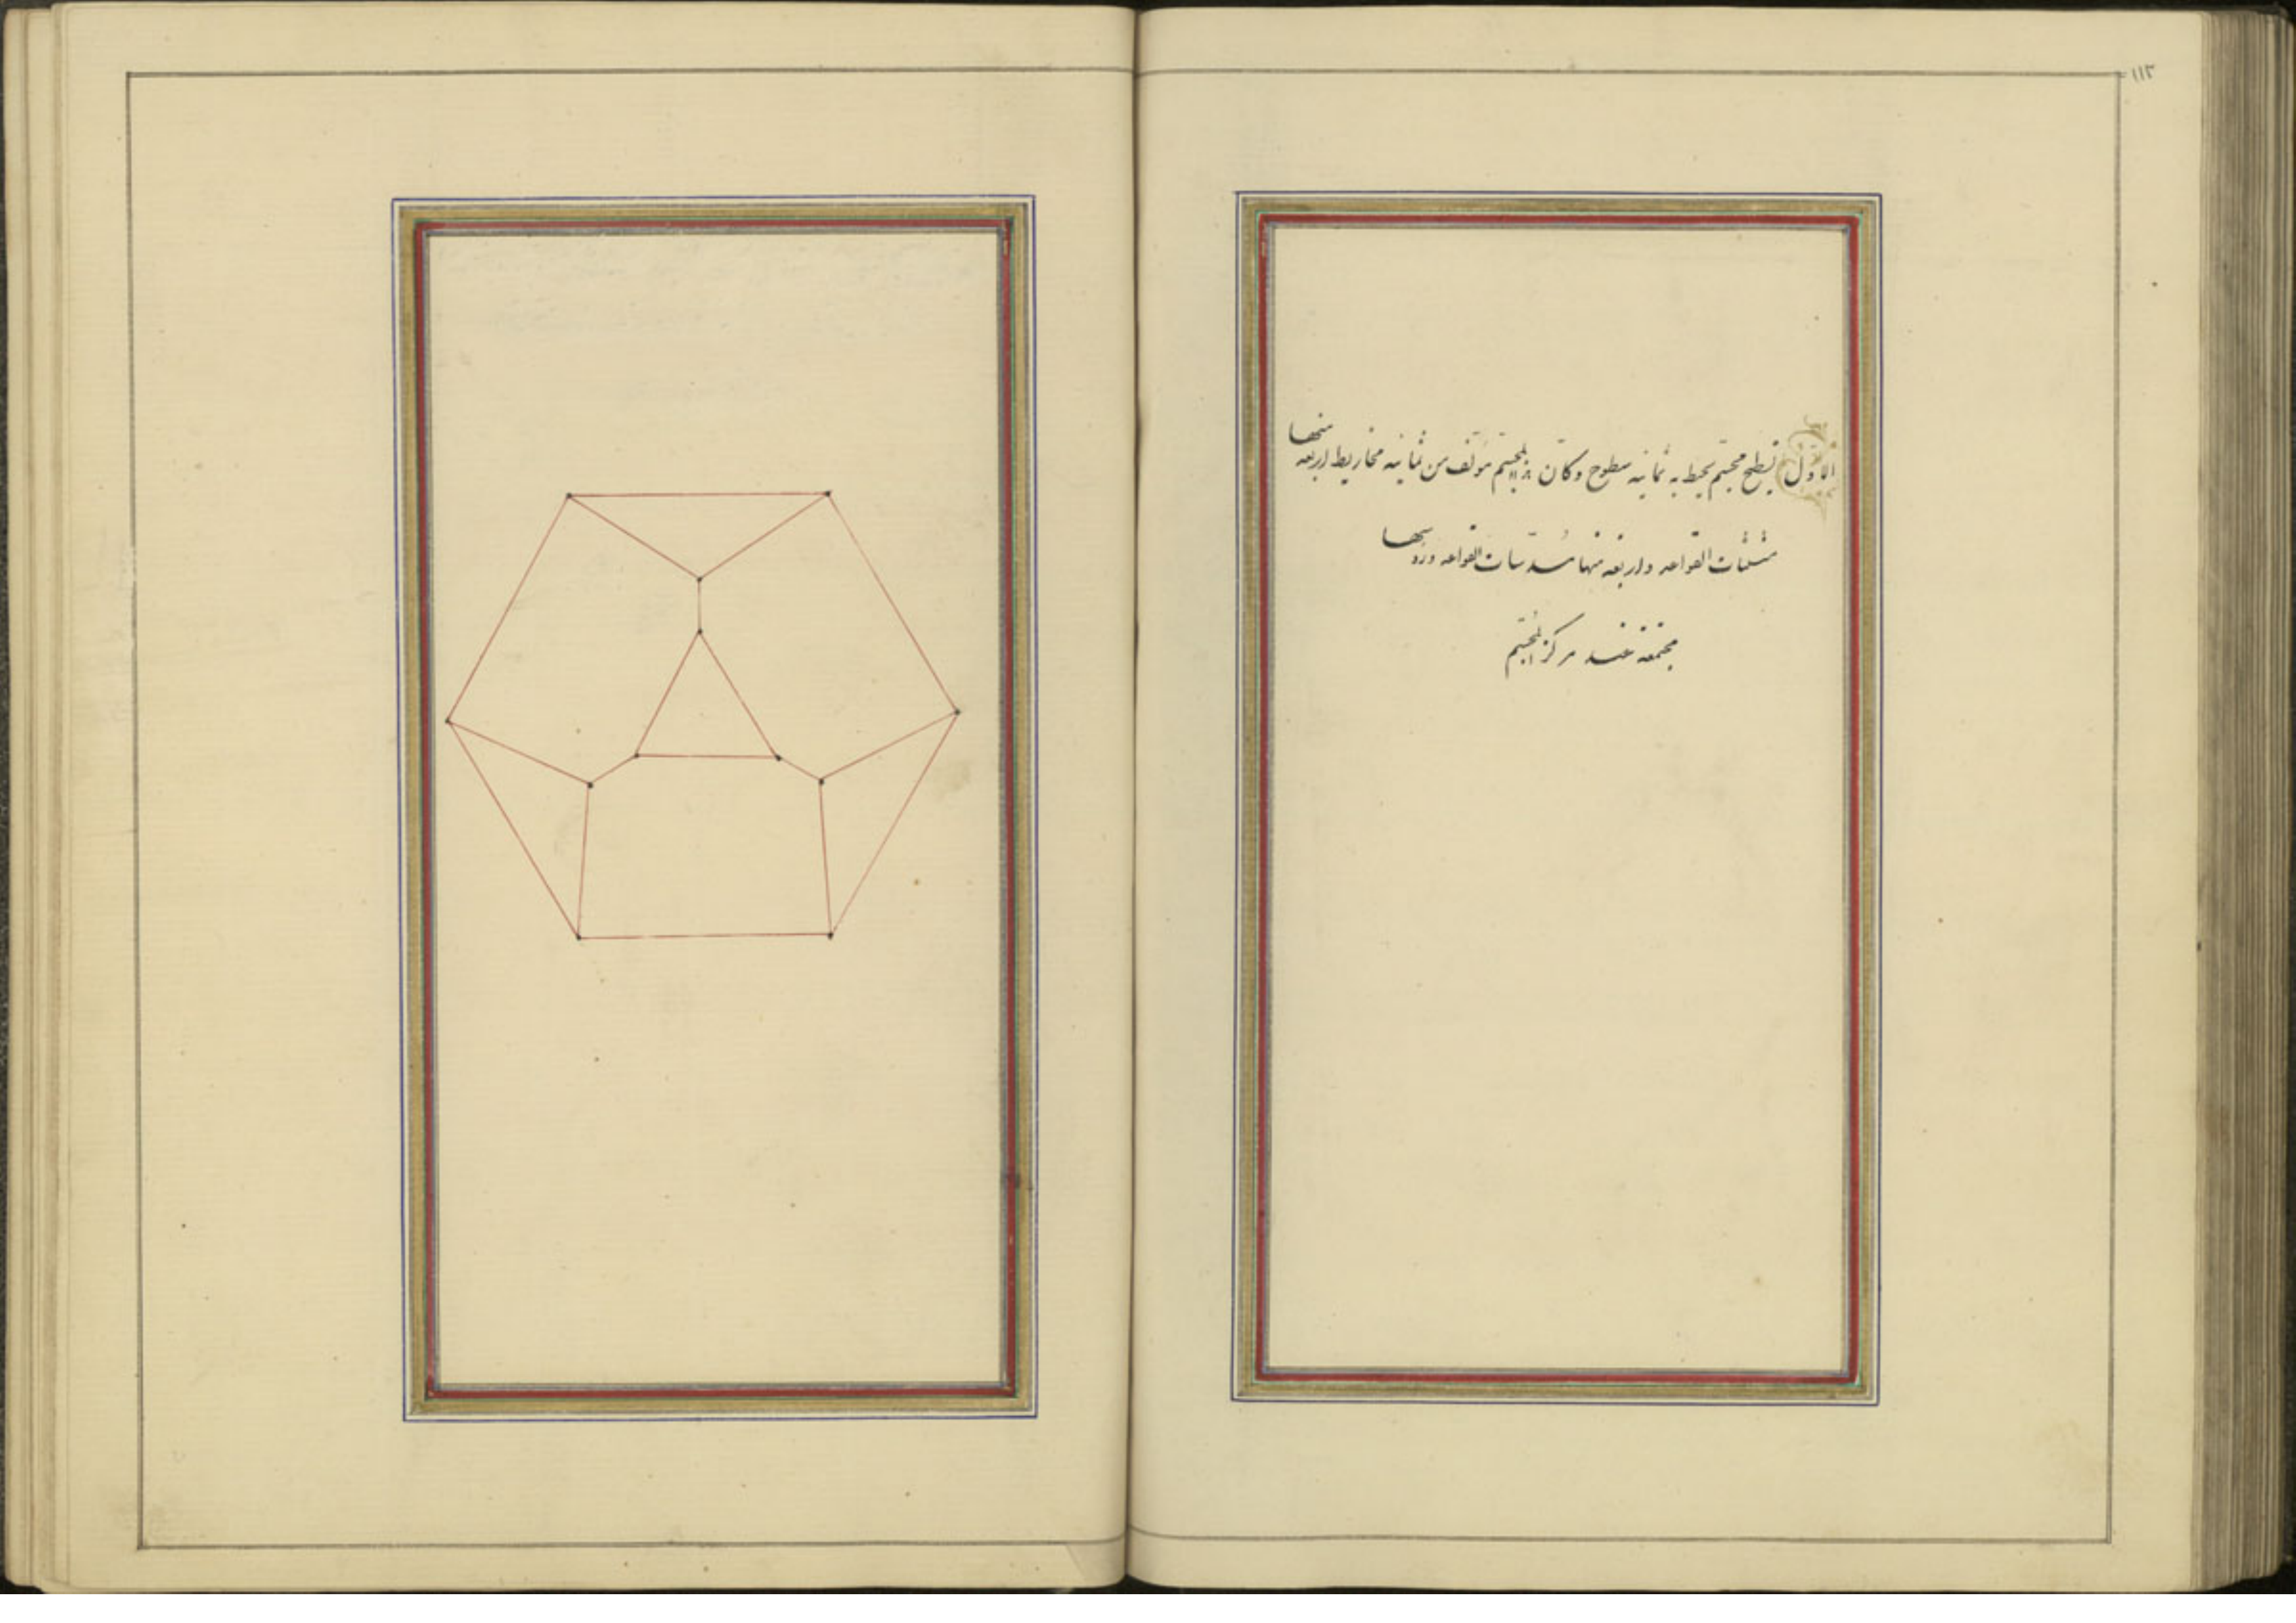 ١١٢
الاول تسطح مجسم يحيط به ثمانيه سطوح وكان هذا المجسم مؤلف من ثمانيه مخاريط اربعه منها
مثلثات القواعد واربعه منها مسدسات القواعد ورؤسها
مجتمعة عند مركز المجسم